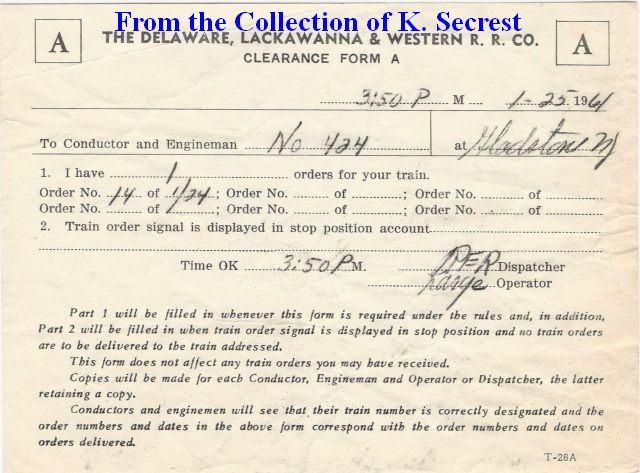 From the Collection of K. Secrest
A THE DELAWARE, LACKAWANNA & WESTERN R. R. CO. A
CLEARANCE FORM A
3:50 P M 1-25 1961
To Conductor and Engineman No 424 at Gladstone NJ
1. I have 1 orders for your train.
Order No. 14 of 1/24; Order No. of ; Order No. of
Order No. of ; Order No. of ; Order No. of
2. Train order signal is displayed in stop position account
Time OK 3:50 P M. Dispatcher
Operator
Part 1 will be filled in whenever this form is required under the rules and, in addition,
Part 2 will be filled in when train order signal is displayed in stop position and no train orders
are to be delivered to the train addressed.
This form does not affect any train orders you may have received.
Copies will be made for each Conductor, Engineman and Operator or Dispatcher, the latter
retaining a copy.
Conductors and enginemen will see that their train number is correctly designated and the
order numbers and dates in the above form correspond with the order numbers and dates on
orders delivered.
T-28A